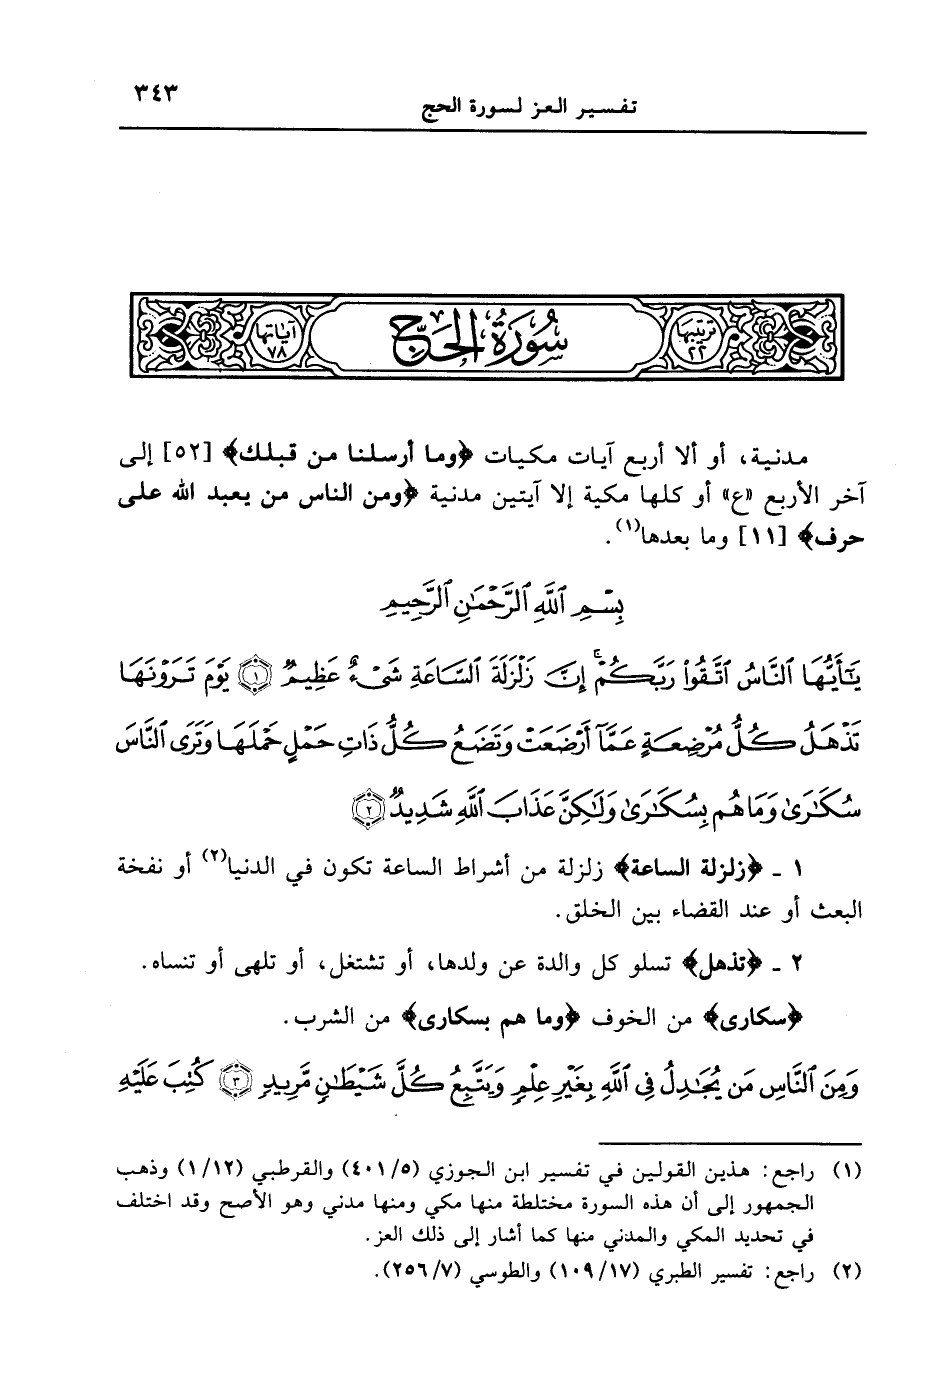 تفسير العز لسورة الحج
٣٤٣
ترتيبها ٢٢
سُورَةُ الحَجّ
آياتها ٧٨
مدنية، أو ألا أربع آيات مكيات ﴿وما أرسلنا من قبلك﴾ [٥٢] إلى
آخر الأربع «ع» أو كلها مكية إلا آيتين مدنية ﴿ومن الناس من يعبد الله على
حرف﴾ [١١] وما بعدها(١).
بِسْمِ ٱللَّهِ ٱلرَّحْمَٰنِ ٱلرَّحِيمِ
يَٰٓأَيُّهَا ٱلنَّاسُ ٱتَّقُوا۟ رَبَّكُمْ ۚ إِنَّ زَلْزَلَةَ ٱلسَّاعَةِ شَىْءٌ عَظِيمٌ ١ يَوْمَ تَرَوْنَهَا
تَذْهَلُ كُلُّ مُرْضِعَةٍ عَمَّآ أَرْضَعَتْ وَتَضَعُ كُلُّ ذَاتِ حَمْلٍ حَمْلَهَا وَتَرَى ٱلنَّاسَ
سُكَٰرَىٰ وَمَا هُم بِسُكَٰرَىٰ وَلَٰكِنَّ عَذَابَ ٱللَّهِ شَدِيدٌ ٢
١ ـ ﴿زلزلة الساعة﴾ زلزلة من أشراط الساعة تكون في الدنيا(٢) أو نفخة
البعث أو عند القضاء بين الخلق.
٢ ـ ﴿تذهل﴾ تسلو كل والدة عن ولدها، أو تشتغل، أو تلهى أو تنساه.
﴿سكارى﴾ من الخوف ﴿وما هم بسكارى﴾ من الشرب.
وَمِنَ ٱلنَّاسِ مَن يُجَٰدِلُ فِى ٱللَّهِ بِغَيْرِ عِلْمٍ وَيَتَّبِعُ كُلَّ شَيْطَٰنٍ مَّرِيدٍ ٣ كُتِبَ عَلَيْهِ
(١) راجع: هذين القولين في تفسير ابن الجوزي (٤٠١/٥) والقرطبي (١/١٢) وذهب
الجمهور إلى أن هذه السورة مختلطة منها مكي ومنها مدني وهو الأصح وقد اختلف
في تحديد المكي والمدني منها كما أشار إلى ذلك العز.
(٢) راجع: تفسير الطبري (١٠٩/١٧) والطوسي (٢٥٦/٧).